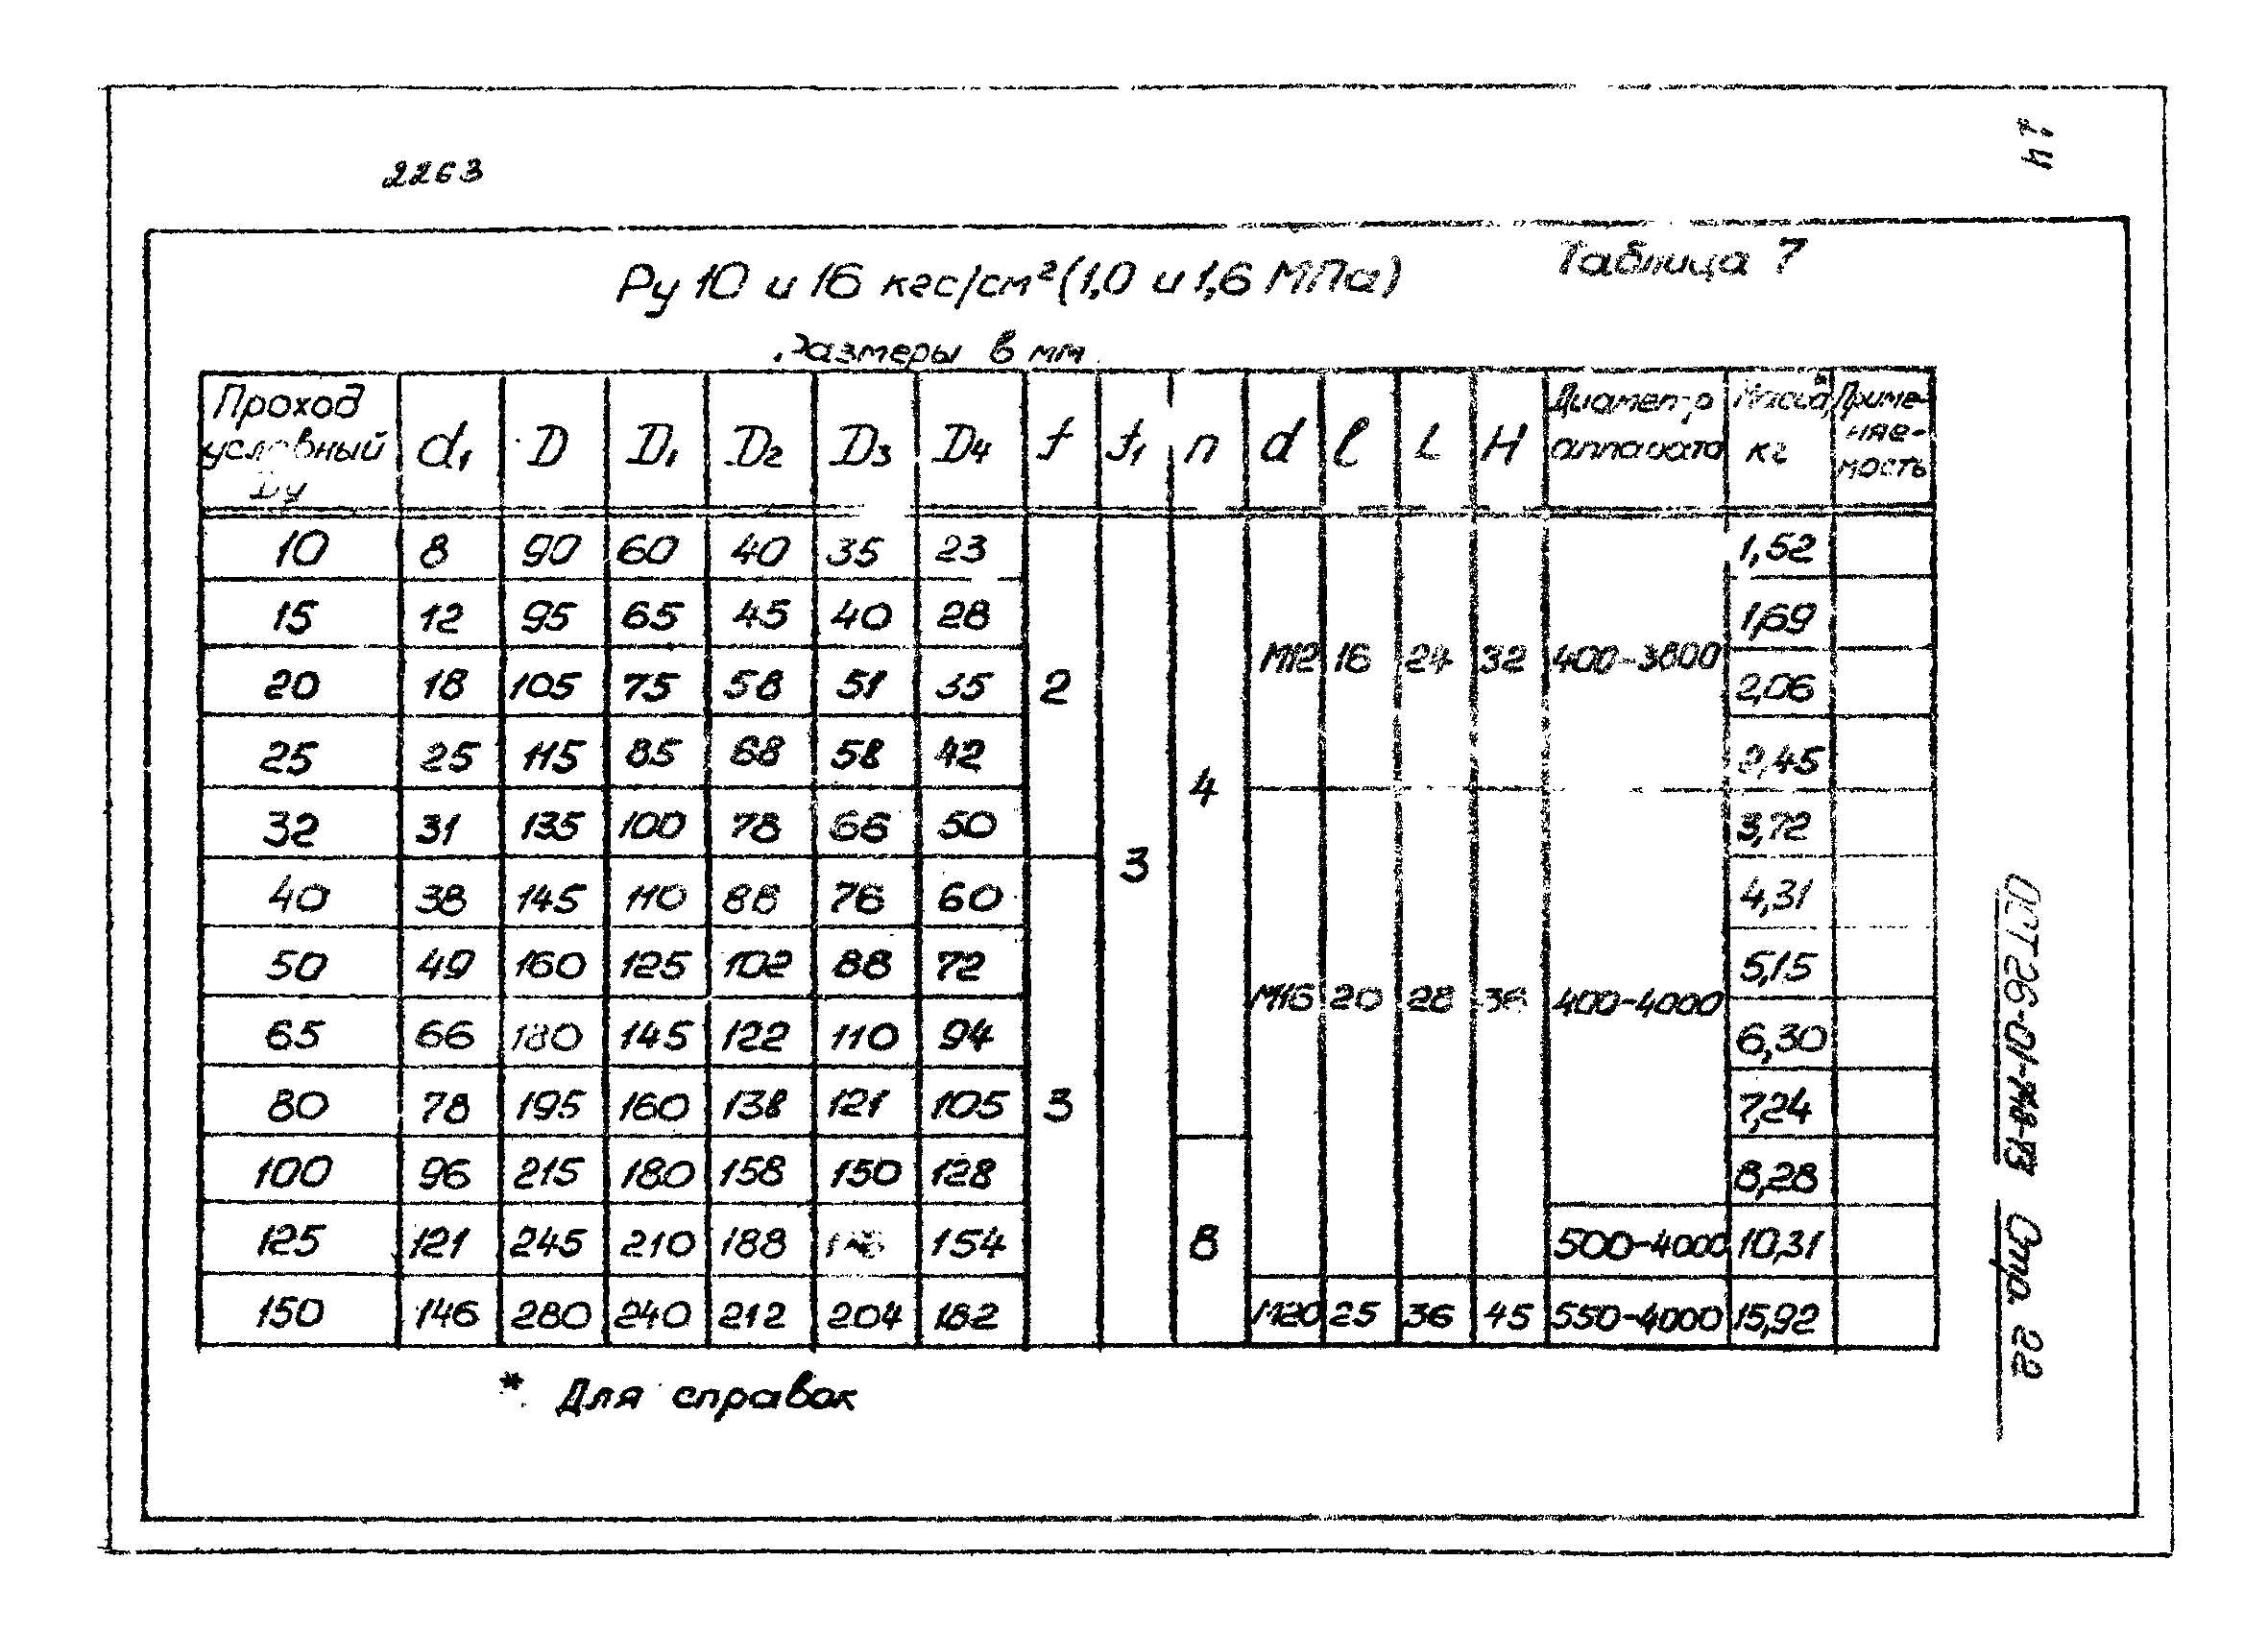 2263
Ру 10 и 16 кгс/см² (1,0 и 1,6 МПа)
Таблица 7
Размеры в мм
Проход условный Dу d₁ D D₁ D₂ D₃ D₄ f f₁ n d ℓ L H Диаметр аппарата Масса* кг Применяемость
10 8 90 60 40 35 23 1,52
15 12 95 65 45 40 28 1,69
М12 16 24 32 400-3800
20 18 105 75 58 51 35 2 2,06
25 25 115 85 68 58 42 2,45
4
32 31 135 100 78 66 50 3,72
3
40 38 145 110 88 76 60 4,31
50 49 160 125 102 88 72 5,15
М16 20 28 400-4000
65 66 180 145 122 110 94 6,30
80 78 195 160 138 121 105 3 7,24
100 96 215 180 158 150 128 8,28
125 121 245 210 188 154 8 500-4000 10,31
150 146 280 240 212 204 182 М20 25 36 45 550-4000 15,92
* Для справок
Стр. 22